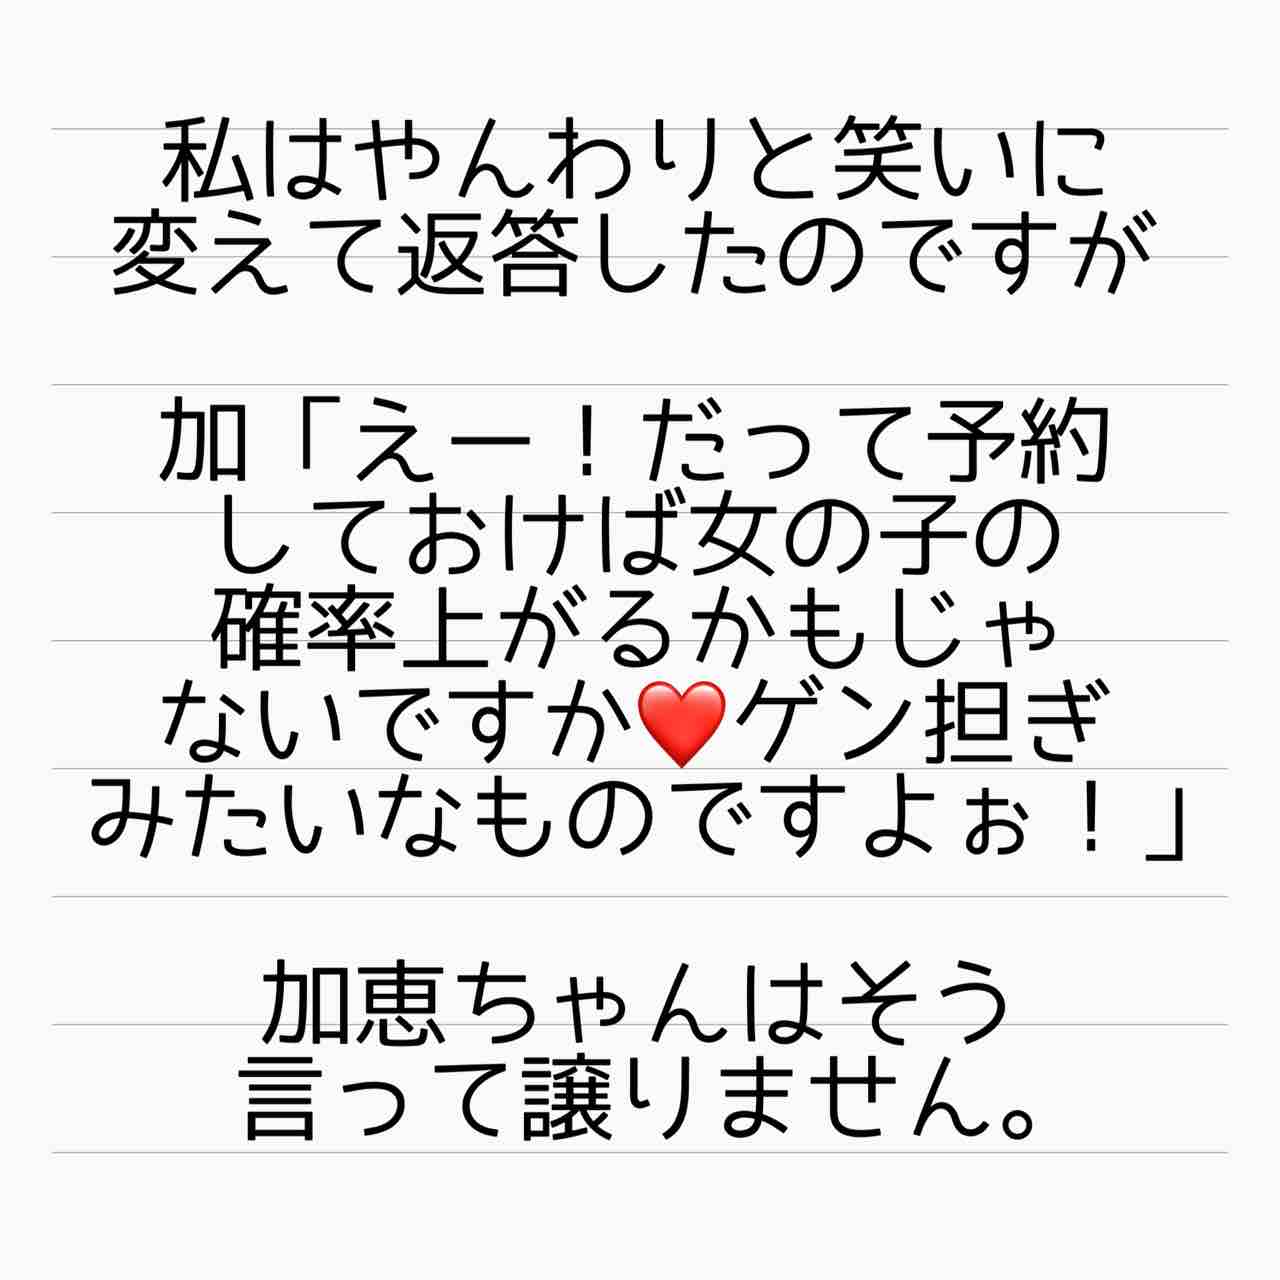 私はやんわりと笑いに
変えて返答したのですが
加「えー！だって予約
しておけば女の子の
確率上がるかもじゃ
ないですか❤️ゲン担ぎ
みたいなものですよぉ！」
加恵ちゃんはそう
言って譲りません。